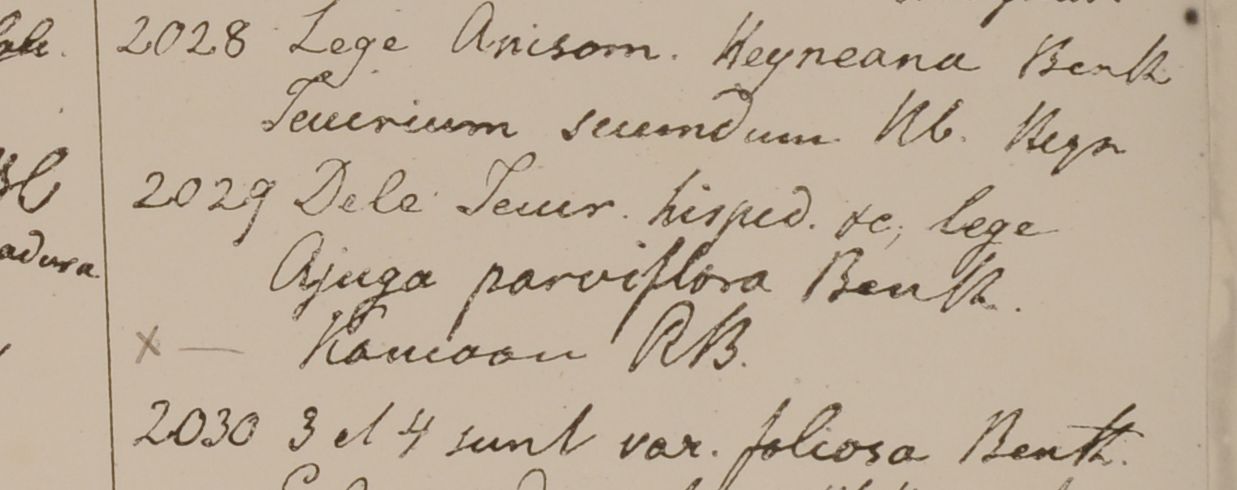 2028 Lege Anisom. Heyneana Benth
Teucrium secundum Hb. Heyn
2029 Dele Teucr. hispid. &c; lege
Ajuga parviflora Benth.
x — Kamaon RB.
2030 3 et 4 sunt var. foliosa Benth.